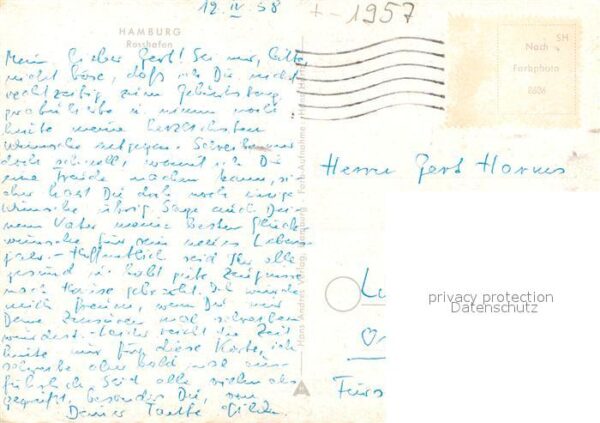 12. IV. 58
+-1957
HAMBURG
Rosshafen
Mein lieber Gert! Sei mir, bitte,
nicht böse, daß ich Dir nicht
rechtzeitig zum Geburtstag
u. nimm noch
heute meine herzlichsten
Wünsche entgegen. Schreibe mir
doch schnell, womit ich Dir
eine Freude machen kann,
hast Du doch noch einige
Wünsche übrig. Sage auch Dei-
nem Vater meine besten Glück-
wünsche für sein neues Lebens-
jahr. Hoffentlich seid Ihr alle
gesund u. habt gute Zeugnisse
nach Hause gebracht. Ich würde
mich freuen, wenn Du mir
Deine Zensuren mal schreiben
würdest. Leider reicht die Zeit
heute nur für diese Karte, ich
schreibe aber bald mal aus-
führlich. Seid alle vielmals
gegrüßt, besonders Du, von
Deiner Tante
Hans Andres Verlag, Hamburg
SH
Nach
Farbphoto
Herrn Gert
privacy protection
Datenschutz